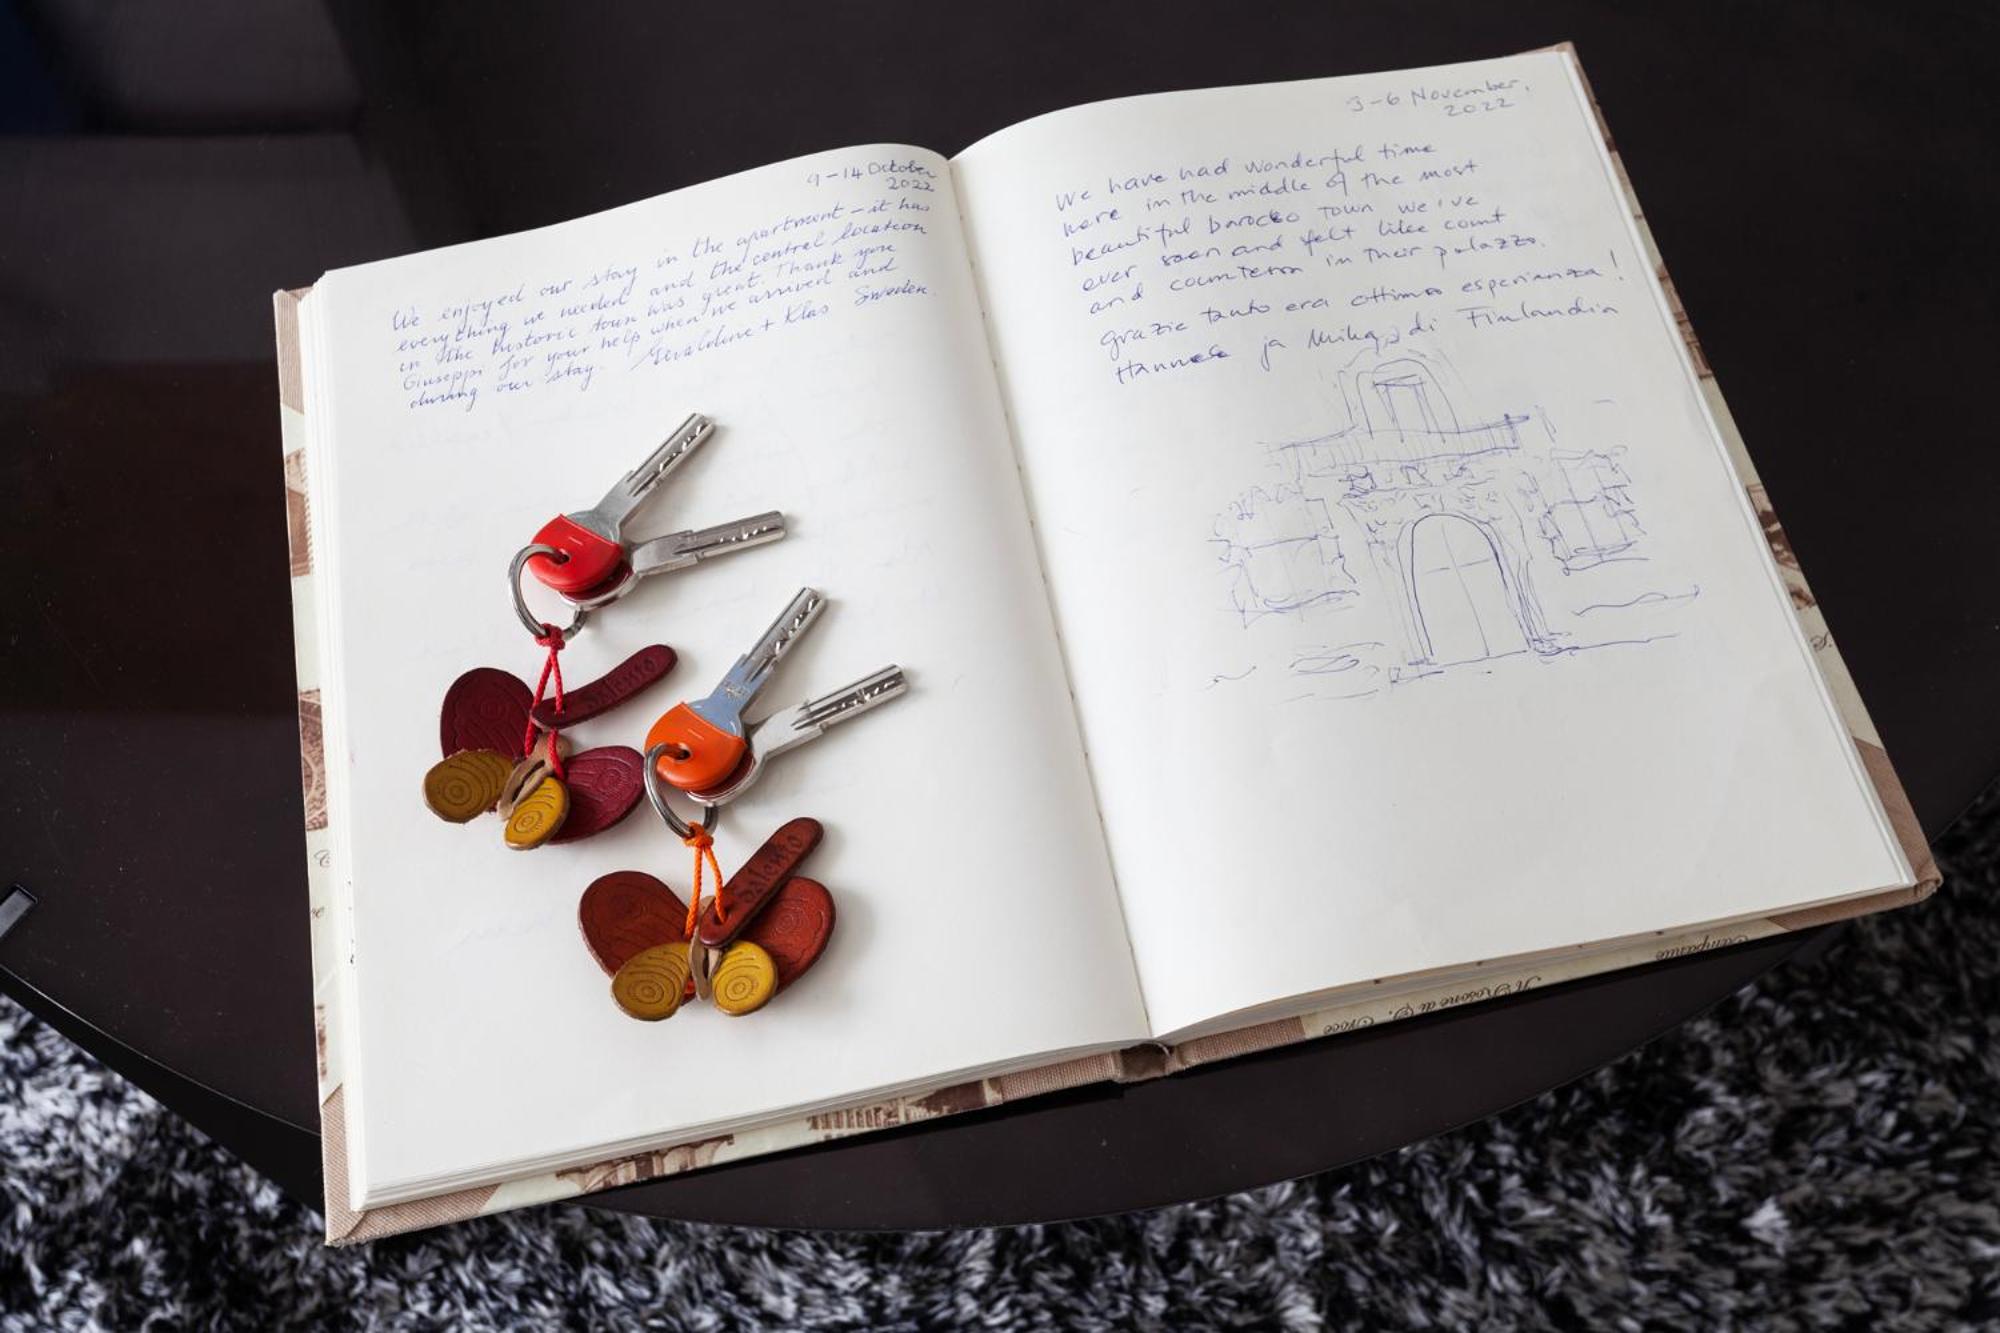 9-14 October
2022
We enjoyed our stay in the apartment – it has
everything we needed and the central location
in the historic town was great. Thank you
Giuseppi for your help when we arrived and
during our stay. Geraldine + Klas Sweden.
3-6 November,
2022
We have had wonderful time
here in the middle of the most
beautiful barocco town we've
ever seen and felt like count
and countess in their palazzo.
grazie tanto era ottima esperienza!
Hannele ja Mika, di Finlandia
Salento
Salento
Il Rosone di S. Croce
Campanile